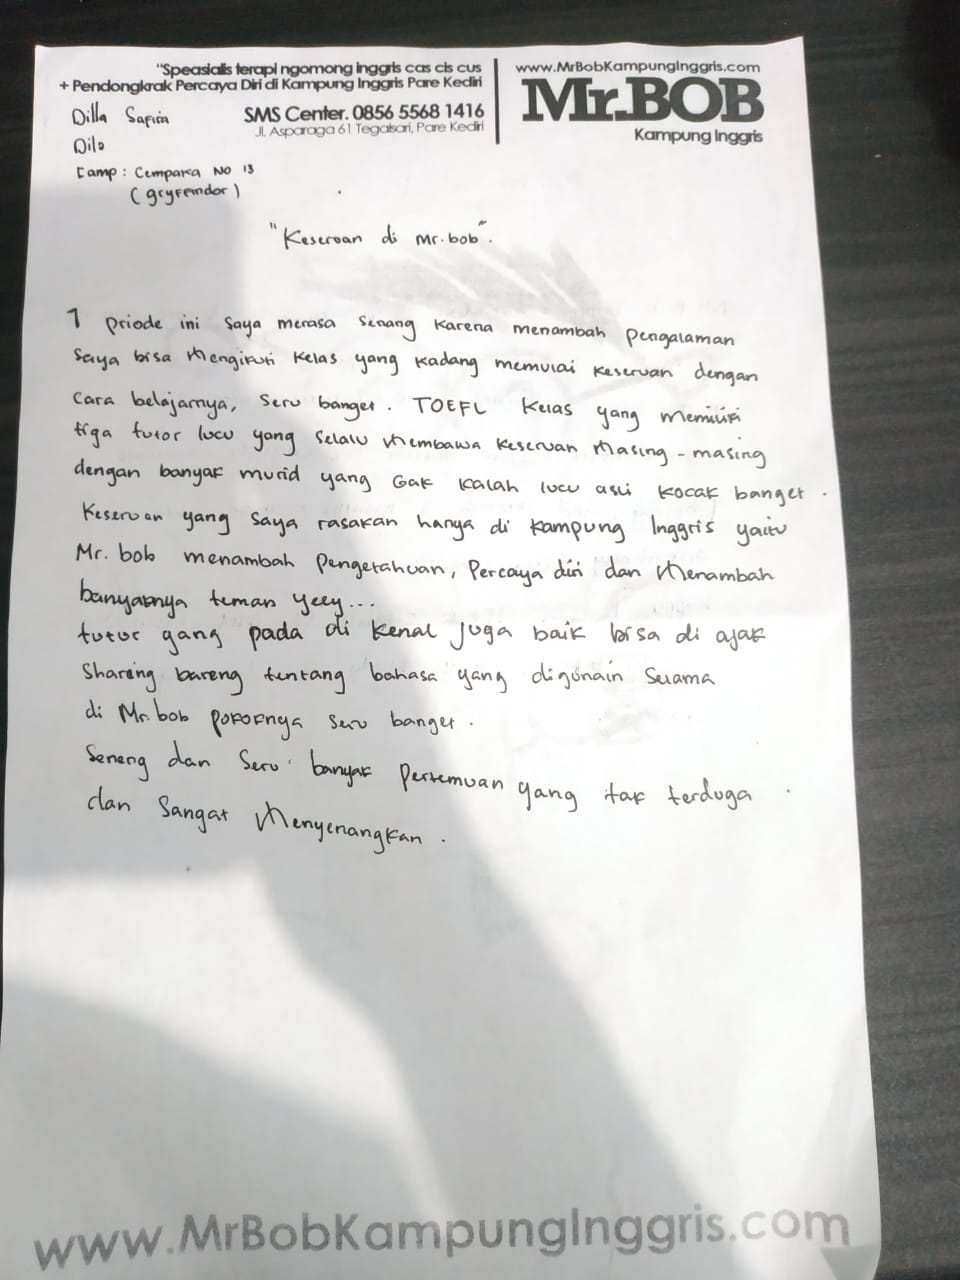 "Speasialis terapi ngomong inggris cas cis cus
+ Pendongkrak Percaya Diri di Kampung Inggris Pare Kediri
SMS Center. 0856 5568 1416
Jl. Asparaga 61 Tegalsari, Pare Kediri
www.MrBobKampungInggris.com
Mr.BOB
Kampung Inggris
Dilla Safira
Dila
Camp : Cempaka No 13
(gryfendor)
"Keseruan di Mr.bob".
1 priode ini saya merasa senang karena menambah pengalaman
saya bisa mengikuti kelas yang kadang memulai keseruan dengan
cara belajarnya, seru banget. TOEFL kelas yang memiliki
tiga tutor lucu yang selalu membawa keseruan masing-masing
dengan banyak murid yang Gak kalah lucu asli kocak banget.
Keseruan yang saya rasakan hanya di kampung Inggris yaitu
Mr. bob menambah pengetahuan, percaya diri dan menambah
banyaknya teman yeey...
tutor yang pada di kenal juga baik bisa di ajak
sharing bareng tentang bahasa yang digunain selama
di Mr.bob pokoknya seru banget.
Seneng dan seru banyak pertemuan yang tak terduga.
dan sangat menyenangkan.
www.MrBobKampungInggris.com